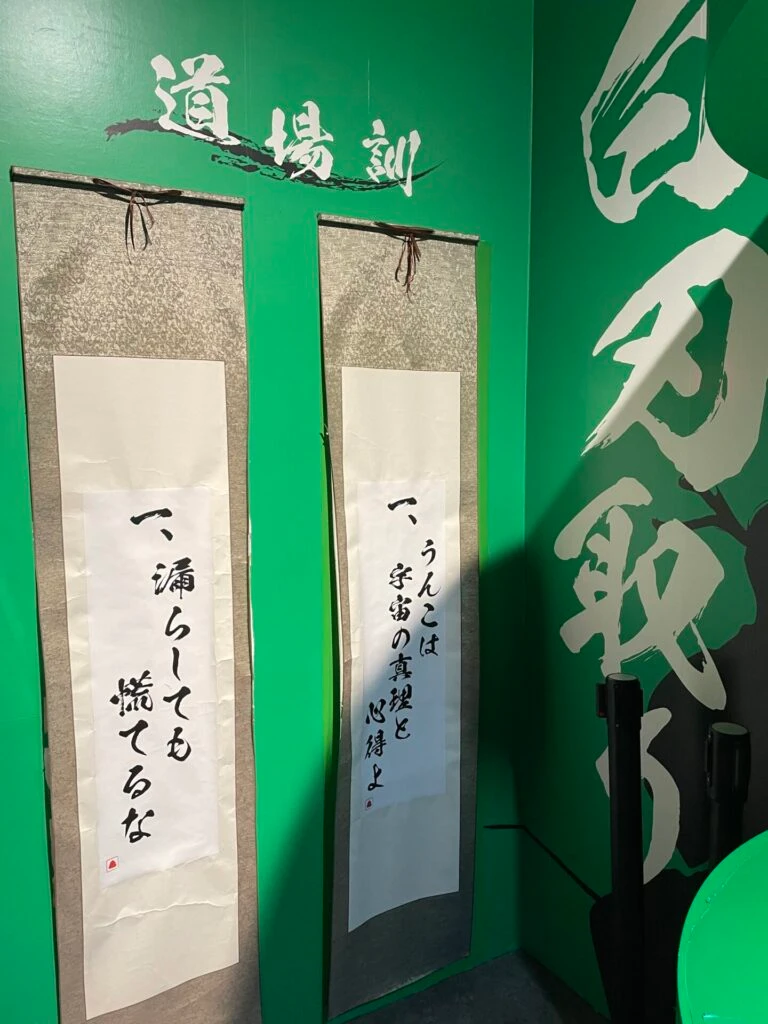 道場訓
一、うんこは
宇宙の真理と
心得よ
一、漏らしても
慌てるな
白刃取り